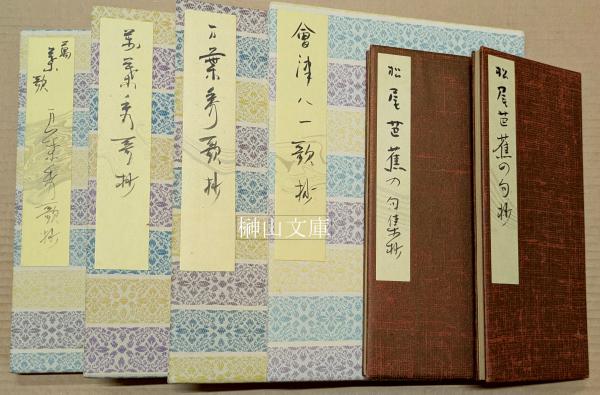 萬葉歌
万葉秀歌抄
萬葉秀歌抄
万葉秀歌抄
會津八一歌抄
松尾芭蕉の句集抄
松尾芭蕉の句抄
榊山文庫